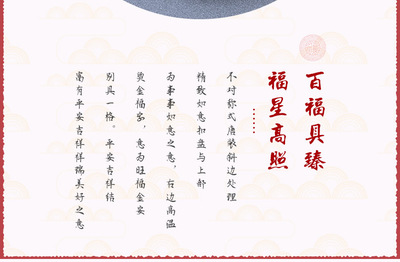 百福具臻
福星高照
不对称式唐装斜边处理
精致如意扣盘与上部
为事事如意之意，右边高温
烫金福字，意为旺福金安
别具一格。平安吉祥结
富有平安吉祥祥瑞美好之意